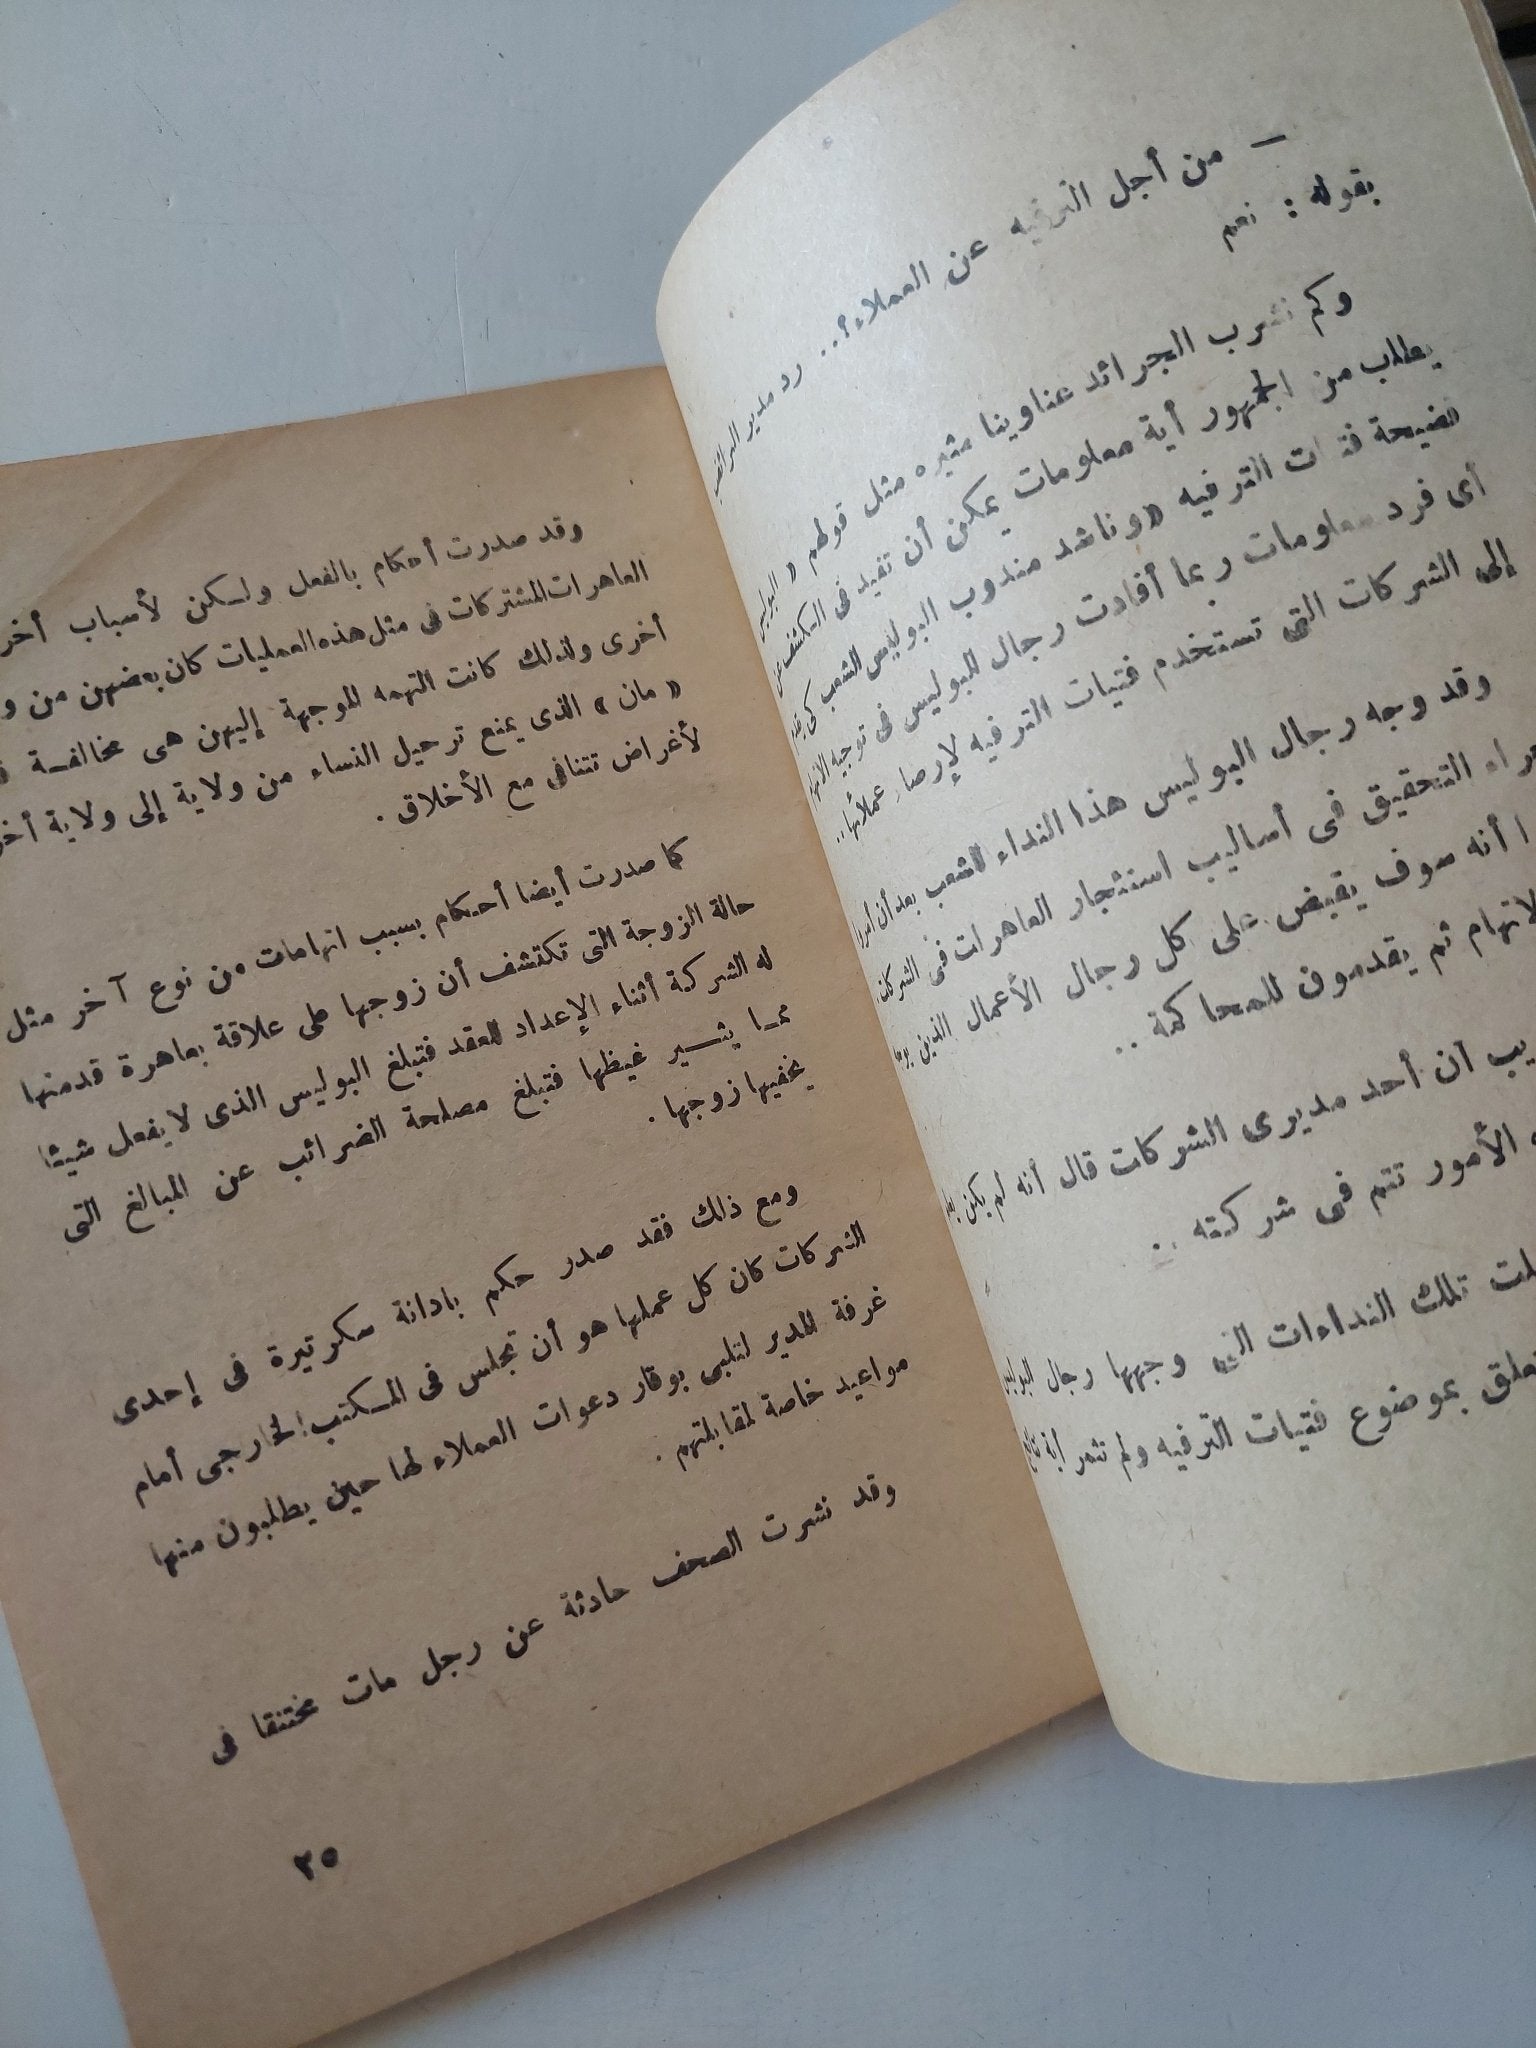 — من أجل الترفيه عن العملاء؟.. رد مدير
بقوله : نعم
وكم نشرت الجرائد عناوينا مثيره مثل قولهم « البوليس
يطلب من الجمهور أية معلومات يمكن أن تفيد فى الكشف عن
فضيحة فتيات الترفيه » وناشد مندوب البوليس الشعب كى
أى فرد معلومات ربما أفادت رجال البوليس فى توجيه
إلى الشركات التى تستخدم فتيات الترفيه لإرضاء عملائها ..
وقد وجه رجال البوليس هذا النداء للشعب بعد أن
التحقيق فى أساليب استئجار العاهرات فى الشركات.
أنه سوف يقبض على كل رجال الأعمال الذين
ثم يقدمون للمحاكمة ..
أن أحد مديرى الشركات قال أنه لم يكن
الأمور تتم فى شركته ..
تلك النداءات التى وجهها رجال البوليس
بموضوع فتيات الترفيه ولم تثمر أية
وقد صدرت أحكام بالفعل ولكن لأسباب
العاهرات المشتركات فى مثل هذه العمليات كان بعضهن من
أخرى ولذلك كانت التهمه الموجهة إليهن هى مخالفة
« مان » الذى يمنع ترحيل النساء من ولاية إلى ولاية
لأغراض تتنافى مع الأخلاق .
كما صدرت أيضا أحكام بسبب اتهامات من نوع آخر مثل
حالة الزوجة التى تكتشف أن زوجها على علاقة بعاهرة قدمتها
له الشركة أثناء الإعداد للعقد فتبلغ البوليس الذى لا يفعل شيئا
مما يثير غيظها فتبلغ مصلحة الضرائب عن المبالغ التى
يخفيها زوجها .
ومع ذلك فقد صدر حكم بادانة سكرتيرة فى إحدى
الشركات كان كل عملها هو أن تجلس فى المكتب الخارجى أمام
غرفة المدير لتلبى بوقار دعوات العملاء لها حين يطلبون منها
مواعيد خاصة لمقابلتهم .
وقد نشرت الصحف حادثة عن رجل مات مختنقا فى
٢٥